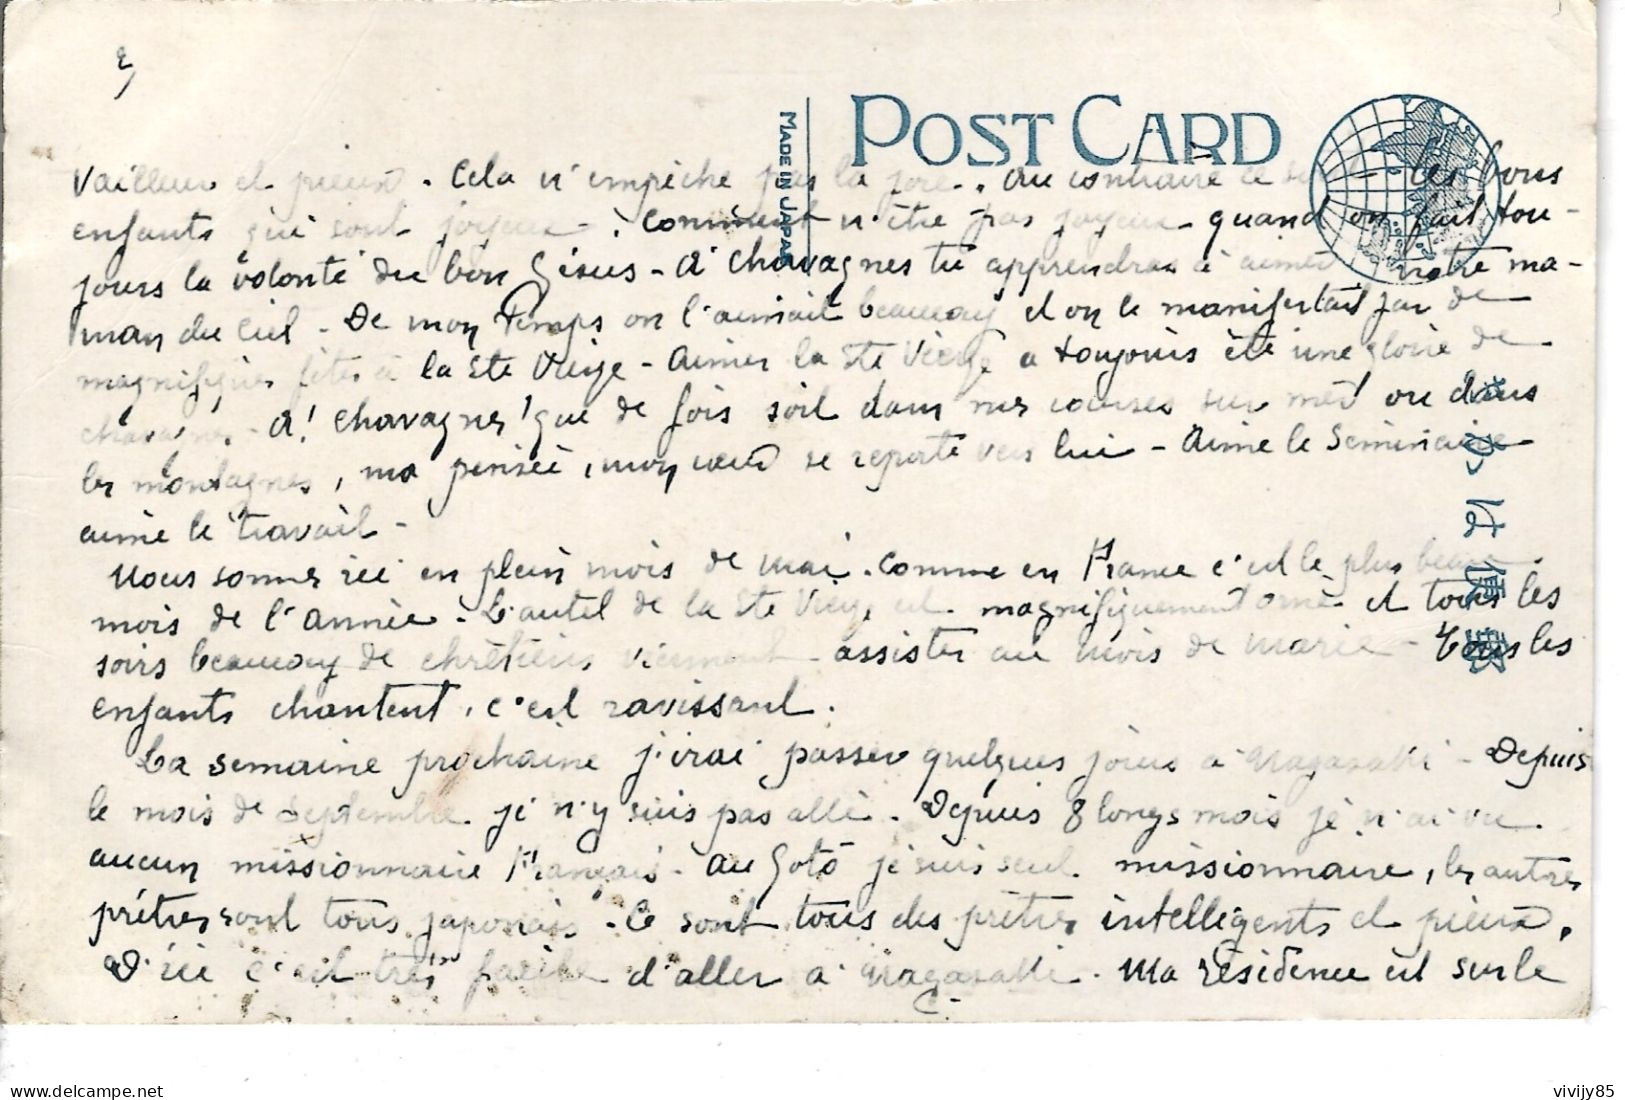 2)
POST CARD
MADE IN JAPAN
vailleur et pieux. Cela n'empêche pas la joie. Au contraire ce sont les bons
enfants qui sont joyeux. Comment n'être pas joyeux quand on fait tou-
jours la volonté du bon Jésus - A Chavagnes tu apprendras à aimer notre ma-
man du Ciel - De mon temps on l'aimait beaucoup et on le manifestait par de
magnifiques fêtes à la Ste Vierge - Aimer la Ste Vierge a toujours été une gloire de
chavagnes - A! Chavagnes! que de fois soit dans mes courses sur mer ou dans
les montagnes, ma pensée, mon cœur se reporte vers lui - Aime le Séminaire
aime le travail -
Nous sommes ici en plein mois de mai. Comme en France c'est le plus beau
mois de l'année - L'autel de la Ste Vierge est magnifiquement orné et tous les
soirs beaucoup de chrétiens viennent assister au mois de Marie - Tous les
enfants chantent, c'est ravissant.
La semaine prochaine j'irai passer quelques jours à Nagasaki - Depuis
le mois de Septembre je n'y suis pas allé. Depuis 8 longs mois je n'ai vu
aucun missionnaire Français - Au Gotô je suis seul missionnaire, les autres
prêtres sont tous japonais - Ce sont tous des prêtres intelligents et pieux.
D'ici c'est très facile d'aller à Nagasaki. Ma résidence est sur le
vivijy85